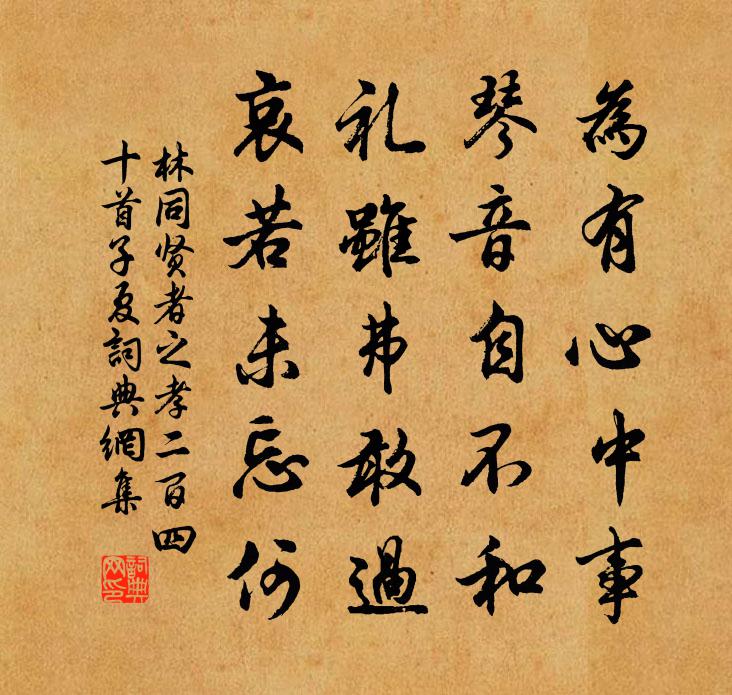 為有心中事
琴音自不和
礼雖弗敢過
哀若未忘何
林同贤者之孝二百四
十首子夏詞典網集
詞典
网印